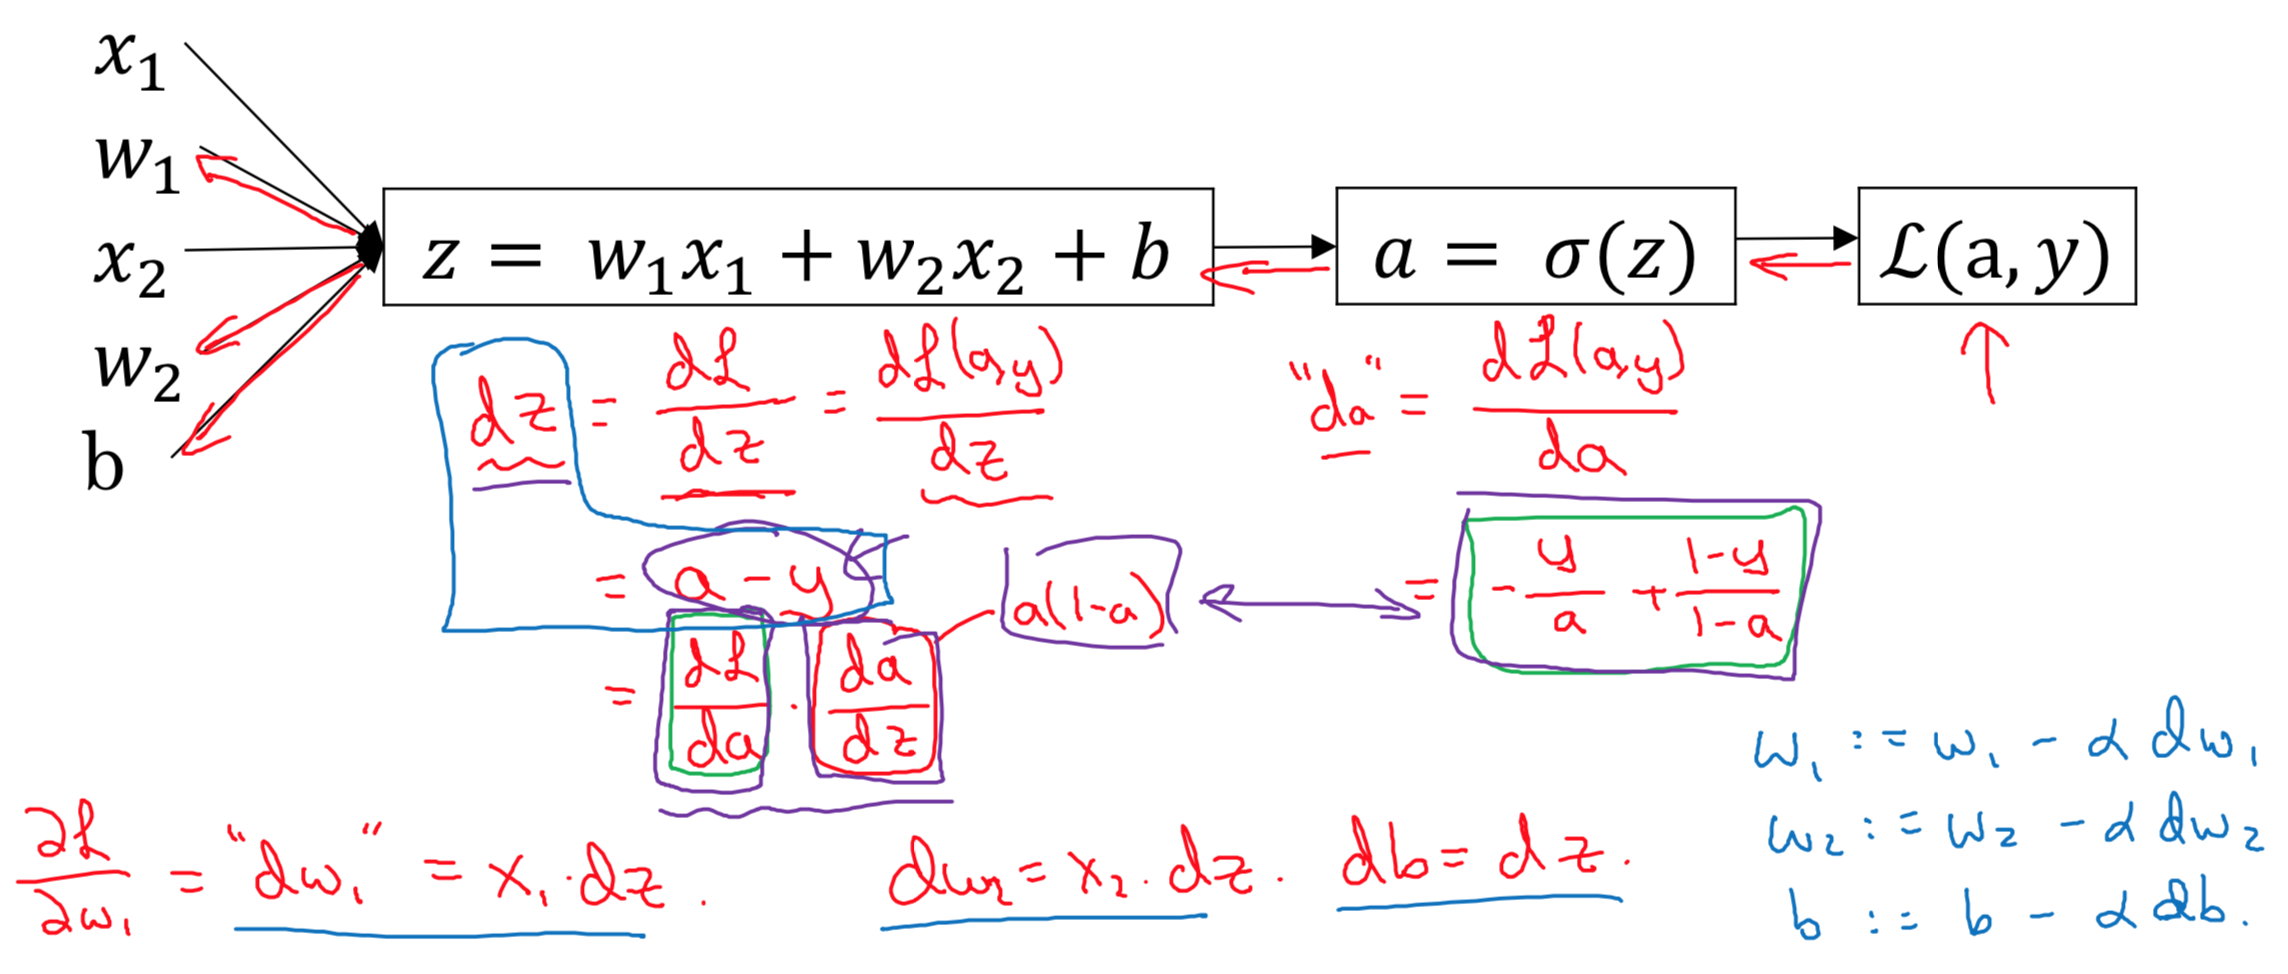 x₁
w₁
x₂
w₂
b
z = w₁x₁ + w₂x₂ + b
a = σ(z)
ℒ(a, y)
dz = dℒ/dz = dℒ(a,y)/dz
"da" = dℒ(a,y)/da
= a - y
a(1-a)
= - y/a + 1-y/1-a
= dℒ/da · da/dz
∂ℒ/∂w₁ = "dw₁" = x₁·dz.
dw₂ = x₂·dz.
db = dz.
w₁ := w₁ - α dw₁
w₂ := w₂ - α dw₂
b := b - α db.